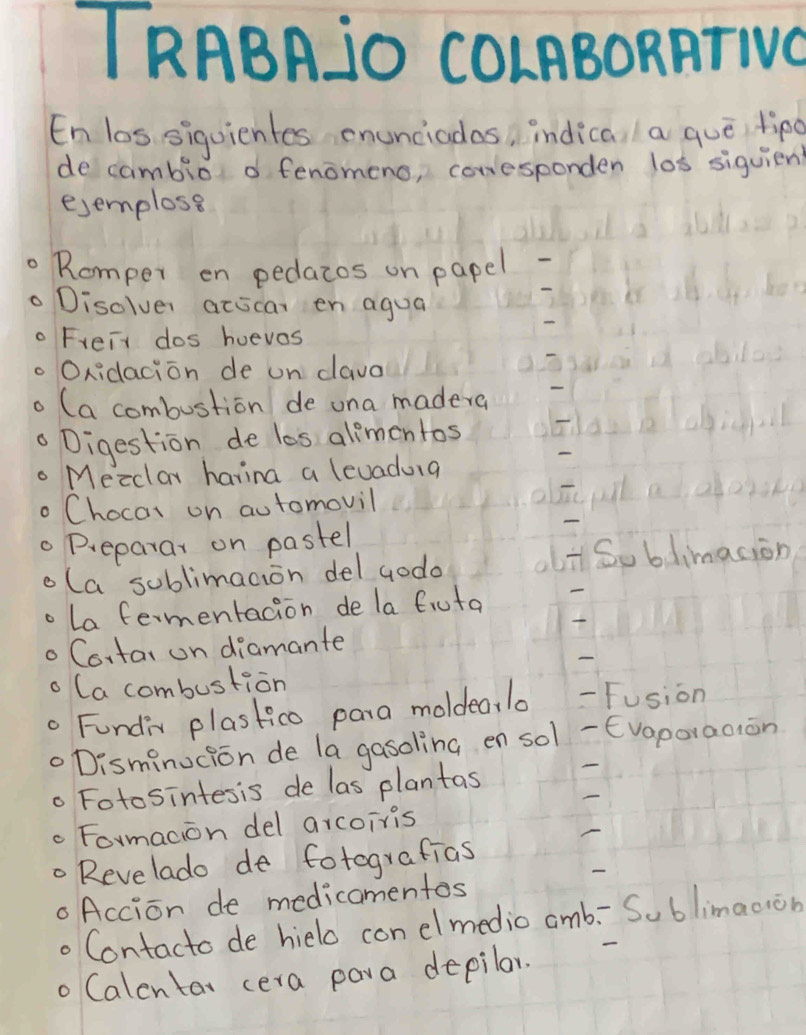 TRABAJO COLABORATIVO
En los siguientes enunciados, indica a qué tipo
de cambio o fenómeno, corresponden los siguient
ejemplos:
• Romper en pedazos un papel -
• Disolver azúcar en agua -
• Freír dos huevos -
• Oxidación de un clavo -
• La combustión de una madera -
• Digestión de los alimentos -
• Mezclar harina a levadura -
• Chocar un automovil -
• Preparar un pastel -
• La sublimación del yodo - Sublimación
• La fermentación de la fruta -
• Cortar un diamante -
• La combustión -
• Fundir plastico para moldearlo - Fusión
• Disminución de la gasolina en sol - Evaporación
• Fotosíntesis de las plantas -
• Formación del arcoíris -
• Revelado de fotografías -
• Acción de medicamentos -
• Contacto de hielo con el medio amb. - Sublimación
• Calentar cera para depilar. -